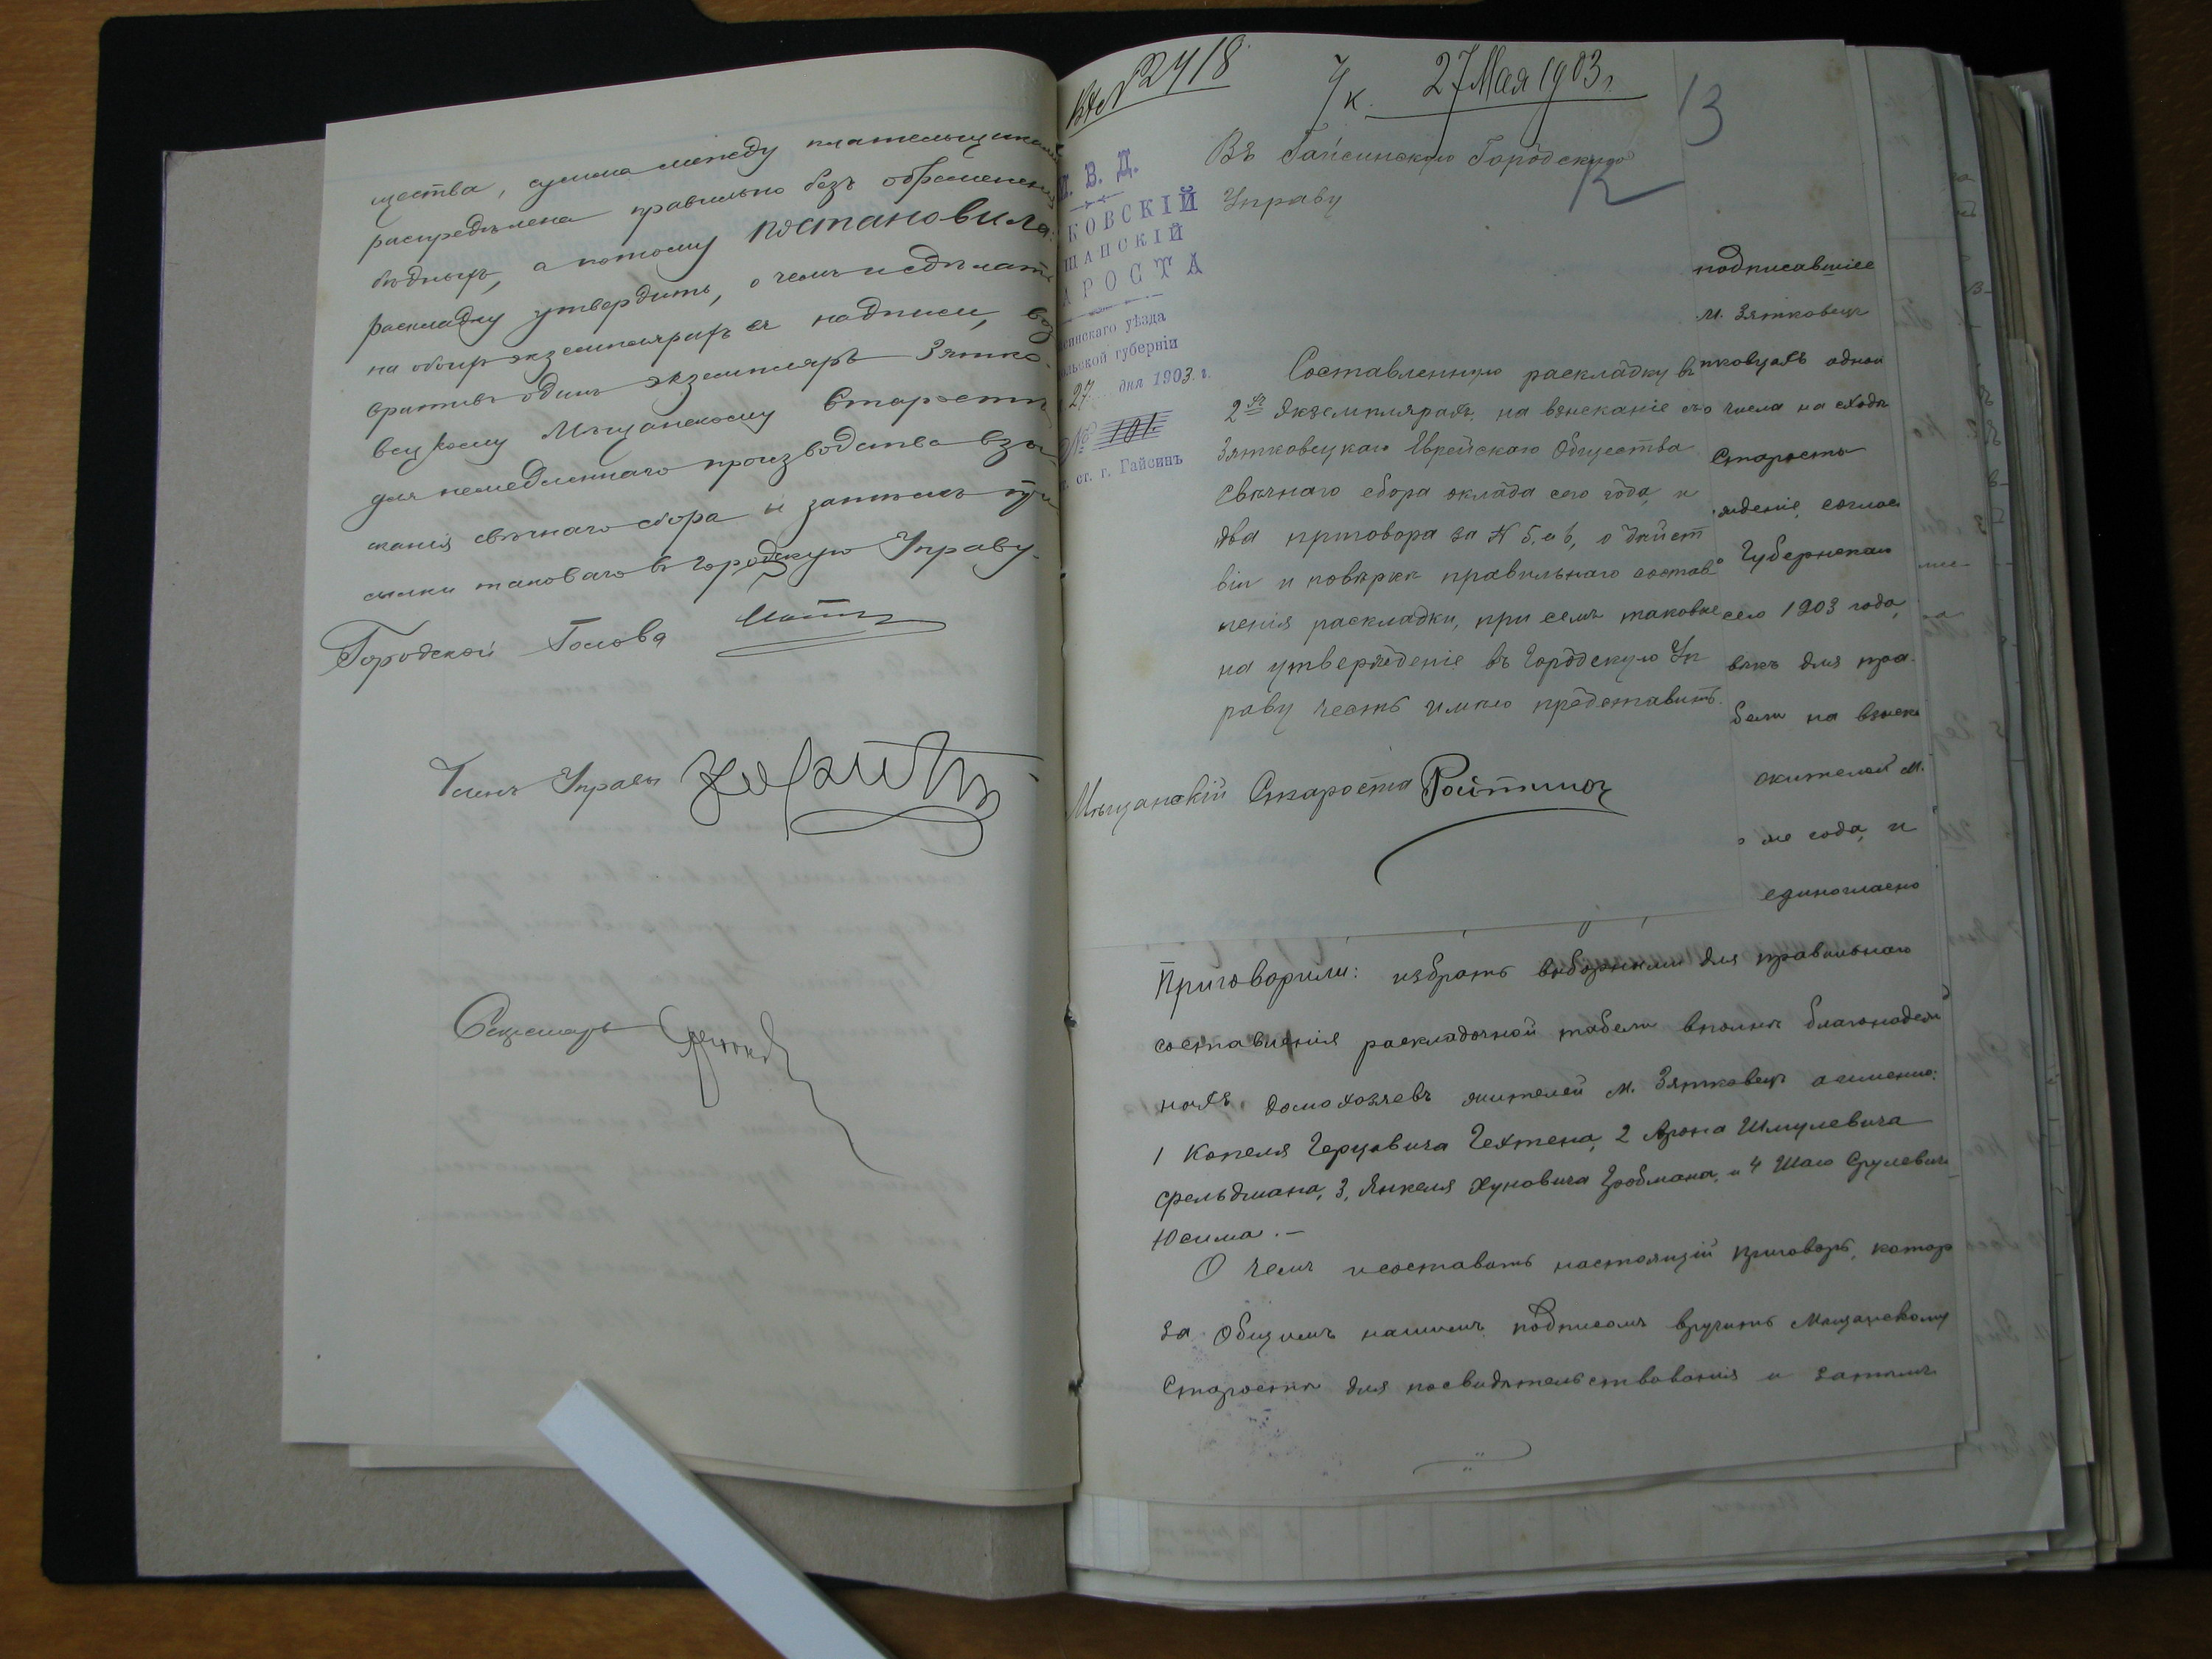 щества, сумма между плательщиками
распредѣлена правильно безъ обремененія
бѣдныхъ, а потому постановила:
раскладку утвердить, о чемъ и сдѣлать
на обоихъ экземплярахъ ея надписи, воз
вративъ одинъ экземпляръ Зятко-
вецкому Мѣщанскому Старостѣ
для немедленнаго производства взы-
сканія свѣчнаго сбора и затѣмъ при
сылки таковаго въ Городскую Управу.
Городской Голова
Членъ Управы
Секретарь
Вх № 2418
27 Мая 1903 г.
13
12
Въ Гайсинскую Городскую
Управу
М. В. Д.
КОВСКІЙ
ЩАНСКІЙ
АРОСТА
синскаго уѣзда
ольской губерніи
27 дня 1903 г.
№ 101.
ст. г. Гайсинъ
Составленную раскладку въ
2хъ экземплярахъ, на взысканіе съ
Зятковецкаго Еврейскаго Общества
Свѣчнаго сбора оклада сего года, и
два приговора за № 5, и 6, о дѣйст
віи и повѣркѣ правильнаго состав
ленія раскладки, при семъ таковые
на утвержденіе въ Городскую Уп
раву честь имѣю представить.
Мѣщанскій Староста Ройтман
подписавшіес
м. Зятковецъ
тковцахъ одной
го числа на сходѣ
Старосты
ждение, соглас
Губернскаго
сего 1903 года,
вѣкъ для пра-
бели на взыска
жителей м.
же года, и
единогласно
Приговорили: избрать выборными для правильнаго
составленія раскладочной табели вполнѣ благонадеж
ныхъ, домохозяевъ жителей м. Зятковецъ а именно:
1 Копеля Герцовича Гехтена, 2 Арона Шмулевича
Фельдмана, 3, Янкеля Хуновича Гробмана, и 4 Шаю Срулевича
Юсима. —
О чемъ и составить настоящій приговоръ, котор
за общимъ нашимъ подписомъ вручить Мѣщанскому
Старостѣ для посвидѣтельствованія и затѣмъ